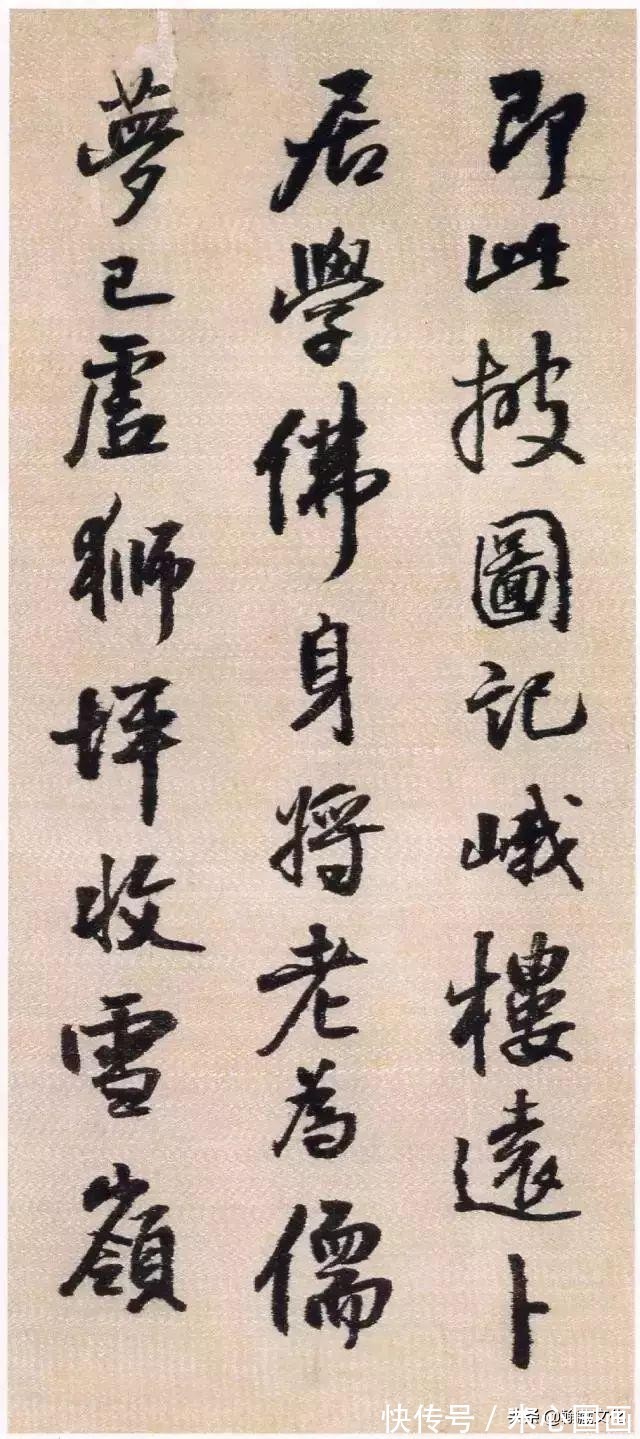 即此披圖記峨樓遠卜
居學佛身將老為儒
夢已虛獅坪收雪嶺
快传号/木心国画